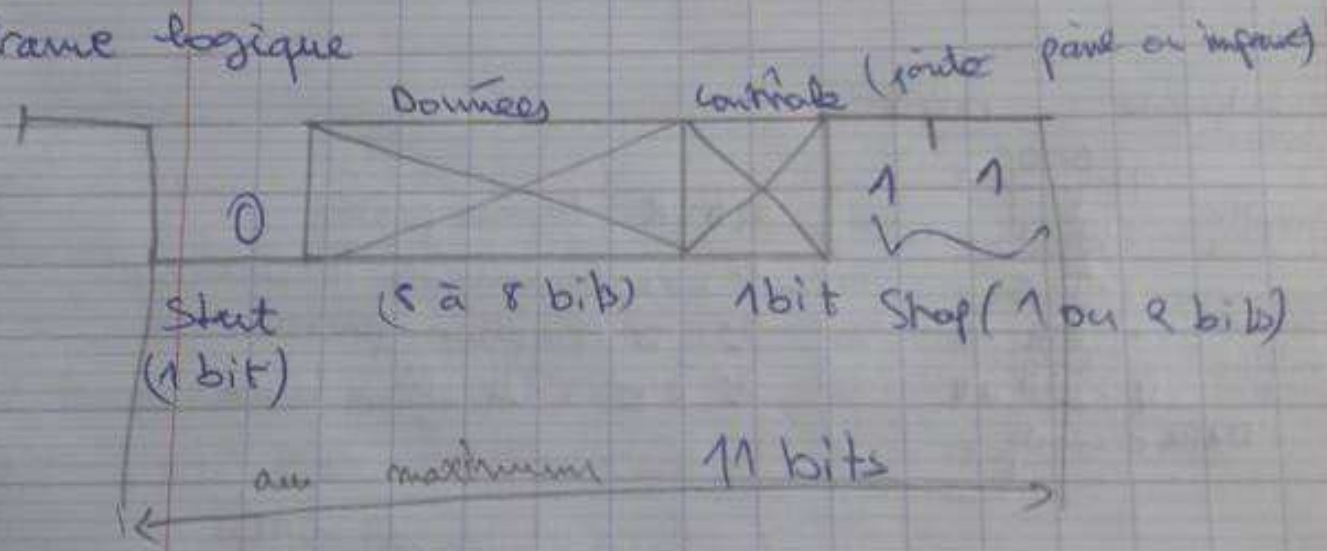 rame logique
Données Contrôle (parité paire ou impaire)
0 1 1
Start (5 à 8 bits) 1 bit Stop (1 ou 2 bits)
(1 bit)
au maximum 11 bits